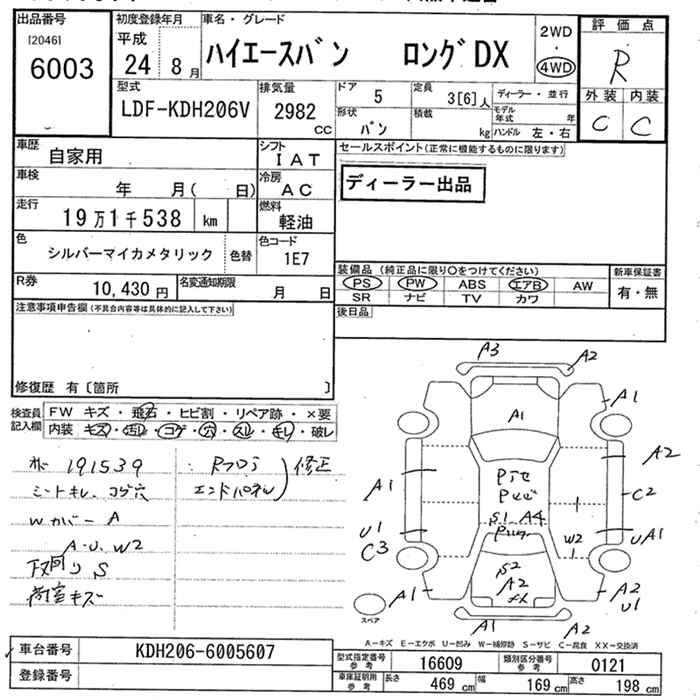 出品番号
[2046]
6003
初度登録年月
平成
24 8月
車名・グレード
ハイエースバン ロングDX
2WD
・
4WD
評価点
R
外装 内装
C C
型式
LDF-KDH206V
排気量
2982
cc
ドア
5
定員
3[6]人
ディーラー・並行
形状
バン
積載
kg
モデル年式 年
ハンドル 左・右
車歴
自家用
シフト
IAT
車検
年 月( 日)
冷房
AC
走行
19万1千538 km
燃料
軽油
色
シルバーマイカメタリック
色替
色コード
1E7
R券
10,430 円
名変通知期限
月 日
セールスポイント(正常に機能するものに限ります)
ディーラー出品
装備品(純正品に限り○をつけてください)
PS PW ABS エアB AW
SR ナビ TV カワ
新車保証書
有・無
後日品
注意事項申告欄(不具合内容等は具体的に記入して下さい)
修復歴 有〔箇所 〕
検査員
記入欄
FW キズ・飛石・ヒビ割・リペア跡・×要
内装 キズ・汚れ・コゲ・穴・スレ・キレ・破レ
191539
シートキレ、コゲ穴
Wカバー A
A・U、W2
下回り S
荷室キズ
Rフロア
エンドパネル
修正
A3
A2
A1
A1
A2
A1
C2
U1
C3
S1 A4
W2
UA1
S2
A2
XX
A1
A2
U1
A1
A2
スペア
A−キズ E−エクボ U−凹み W−補修跡 S−サビ C−腐食 XX−交換済
車台番号
KDH206-6005607
登録番号
型式指定番号
参考
16609
類別区分番号
参考
0121
車庫証明用
参考
長さ 469 cm
幅 169 cm
高さ 198 cm